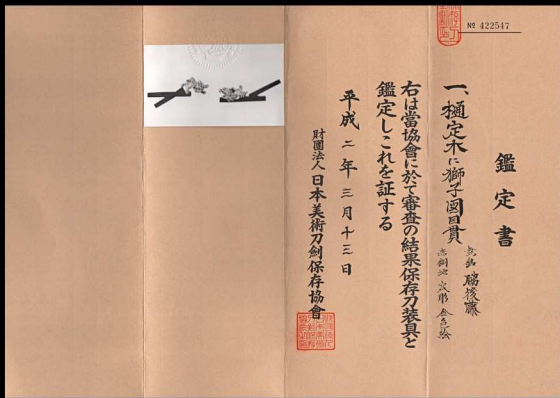 № 422547
鑑定書
一、樋定木に獅子図目貫
無銘 脇後藤
赤銅地 容彫 金色絵
右は當協會に於て審査の結果保存刀装具と
鑑定しこれを証する
平成二年三月十三日
財團法人 日本美術刀劍保存協會